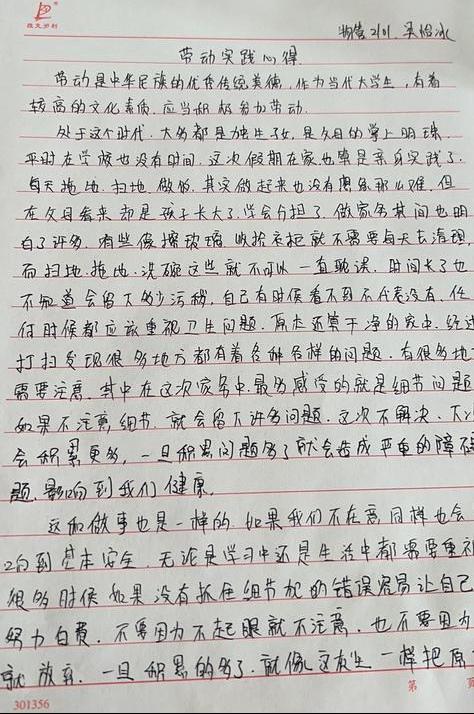 物管2101 吴怡冰
劳动实践心得
劳动是中华民族的优秀传统美德，作为当代大学生，有着
较高的文化素质，应当积极参加劳动。
处于这个时代，大多都是独生子女，是父母的掌上明珠，
平时在学校也没有时间，这次假期在家也算是亲身实践了，
每天拖地，扫地，做饭，其实做起来也没有想象那么难，但
在父母看来却是孩子长大了，学会分担了，做家务其间也明
白了许多，有些像擦玻璃，收拾衣柜就不需要每天去清理，
而扫地，拖地，洗碗这些就不可以一直耽误，时间长了也
不知道会留下多少污秽，自己有时候看不到不代表没有，任
何时候都应该重视卫生问题，原本还算干净的家中，经过
打扫发现很多地方都有着各种各样的问题，有很多地
需要注意，其中在这次家务中，最多感受的就是细节问题
如果不注意细节，就会留下许多问题，这次不解决，下
会积累更多，一旦积累问题多了就会造成严重的障
题，影响到我们健康。
这和做事也是一样的，如果我们不在意，同样也会
响到基本安全，无论是学习中还是生活中都需要重视
很多时候如果没有抓住细节 的错误容易让自己
努力白费，不要因为不起眼就不注意，也不要因为
就放弃，一旦积累的多了，就像这灰尘一样把原
301356
第 页